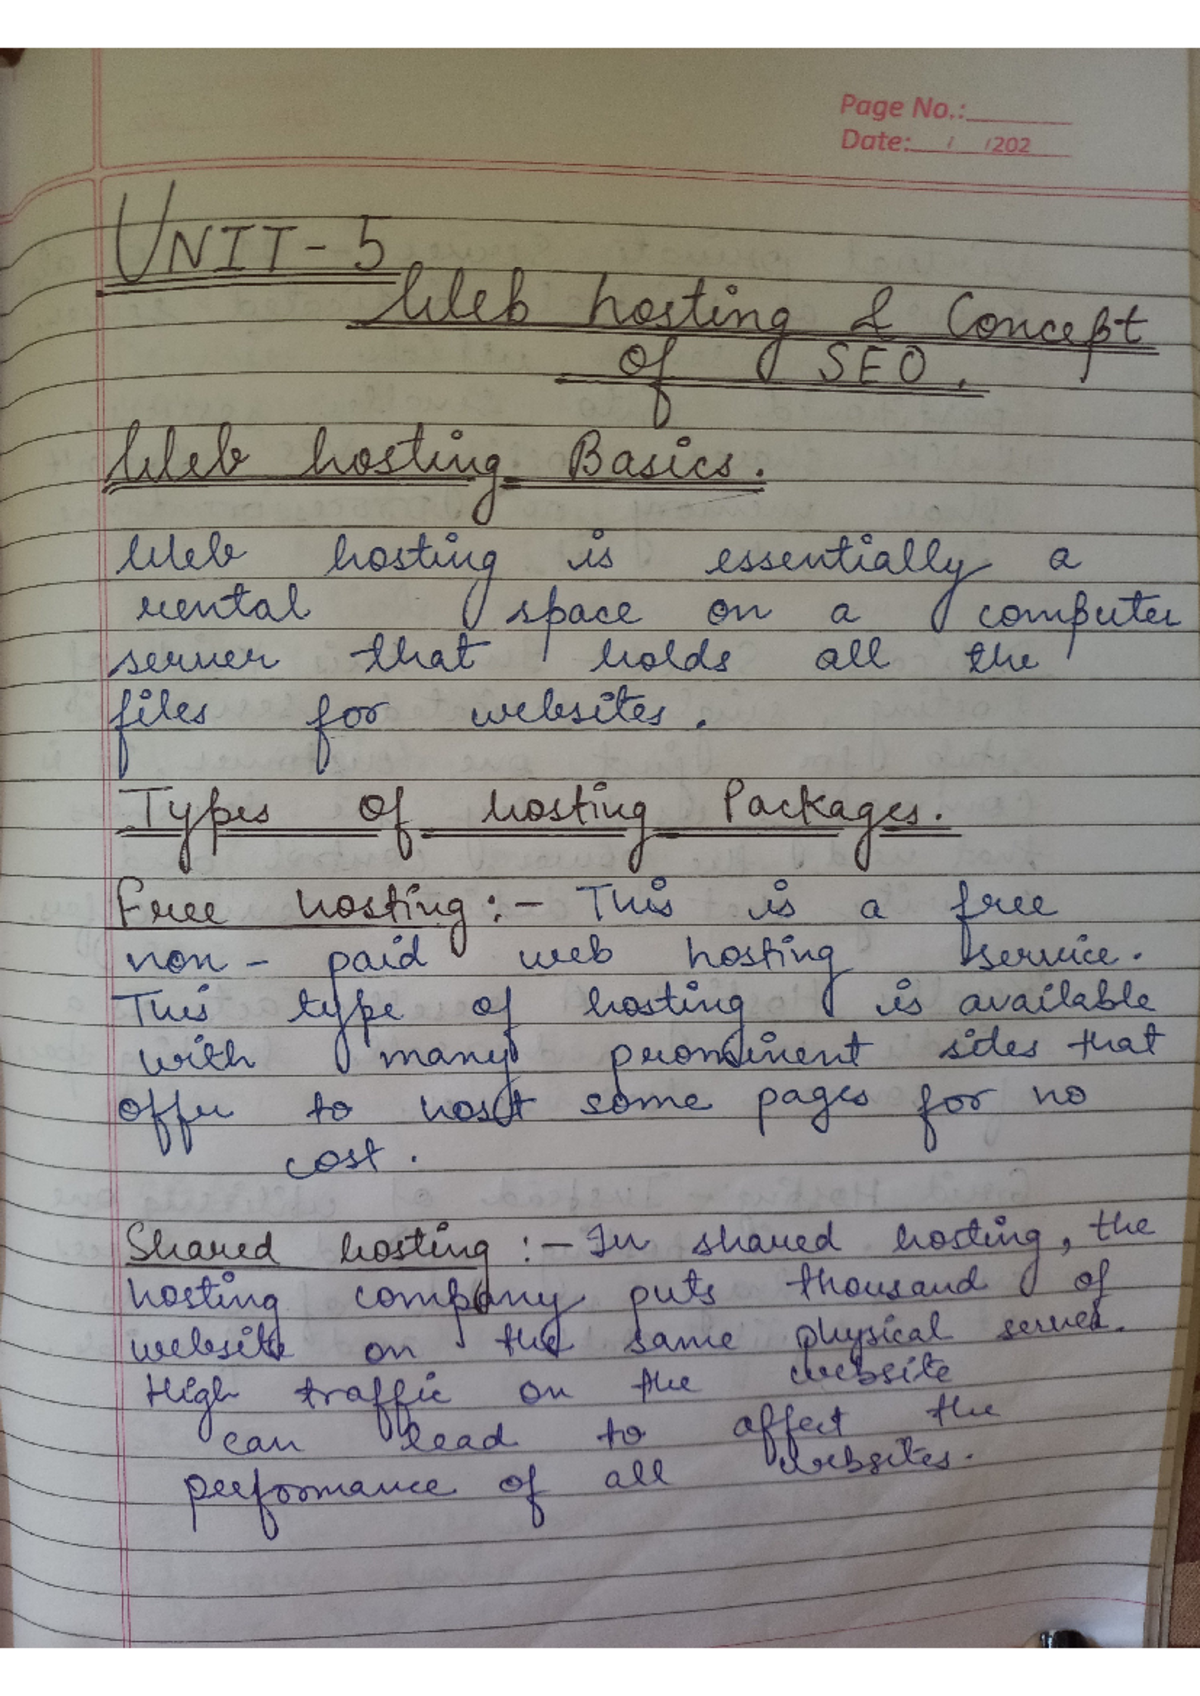 Page No.:
Date: / /202
UNIT-5
Web hosting & Concept
of SEO.
Web hosting Basics.
Web hosting is essentially a
rental space on a computer
server that holds all the
files for websites.
Types of hosting Packages.
Free hosting :- This is a free
non-paid web hosting service.
This type of hosting is available
with many prominent sides that
offer to host some pages for no
cost.
Shared hosting :- In shared hosting, the
hosting company puts thousand of
website on the same physical server.
High traffic on the website
can lead to affect the
performance of all websites.